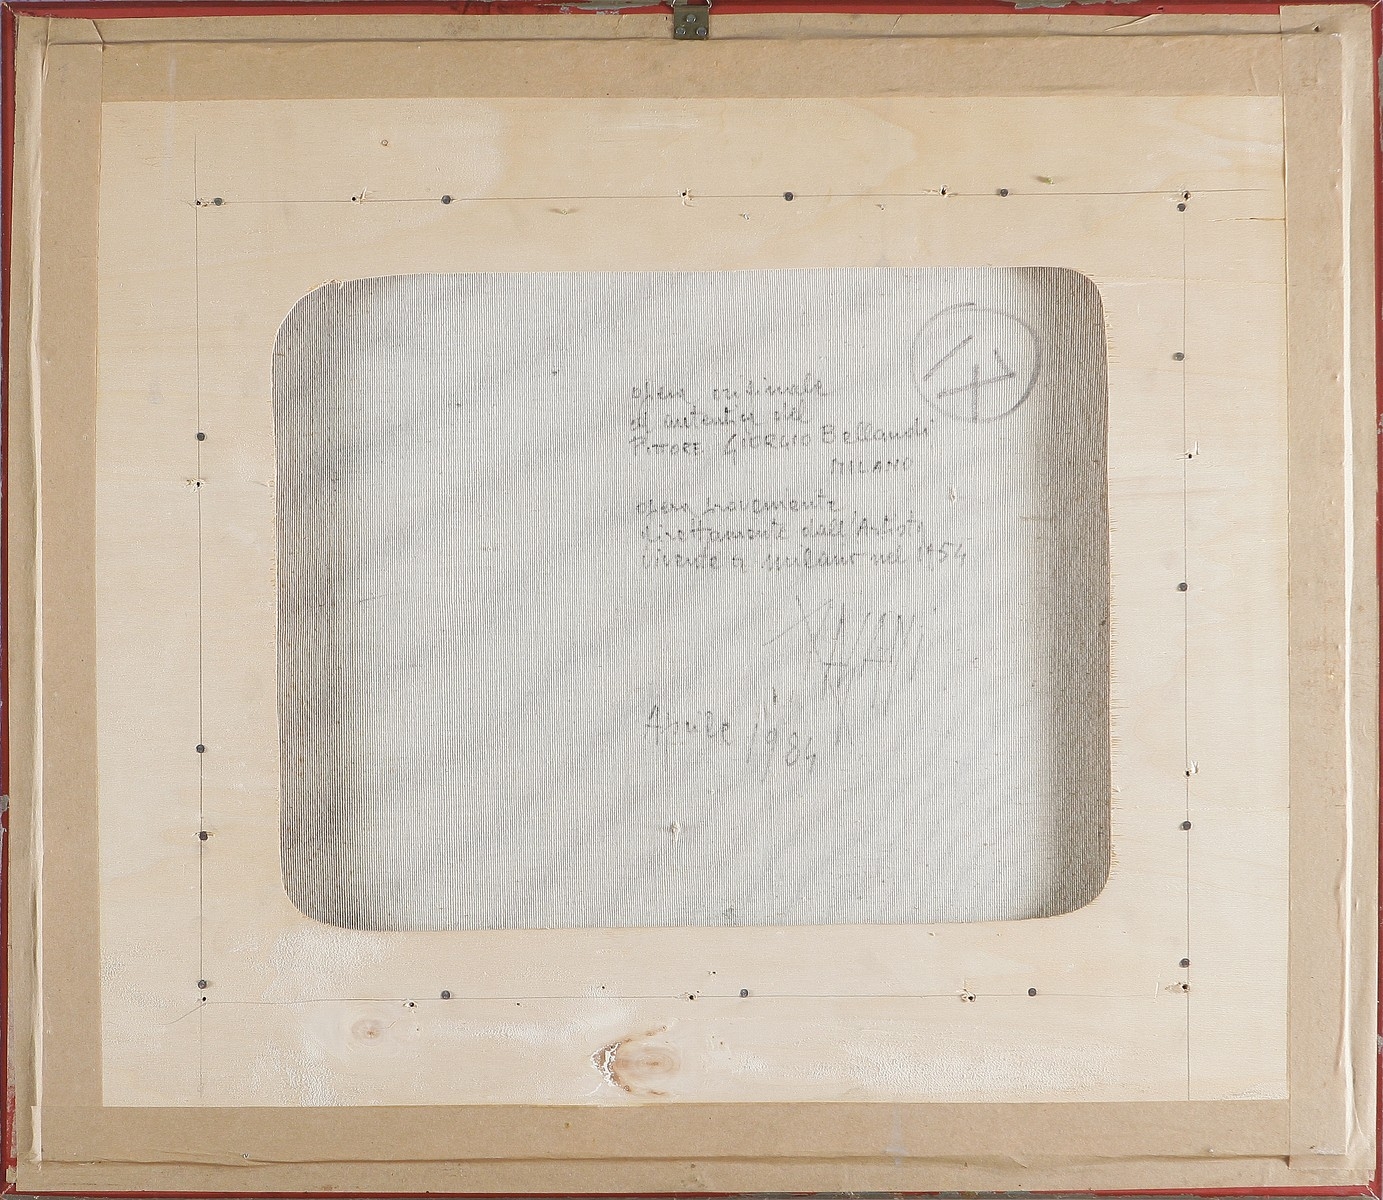 4
opera originale
ed autentica del
PITTORE GIORGIO Bellandi
MILANO
opera proveniente
direttamente dall'Artista
vivente a Milano nel 1954
Aprile 1984